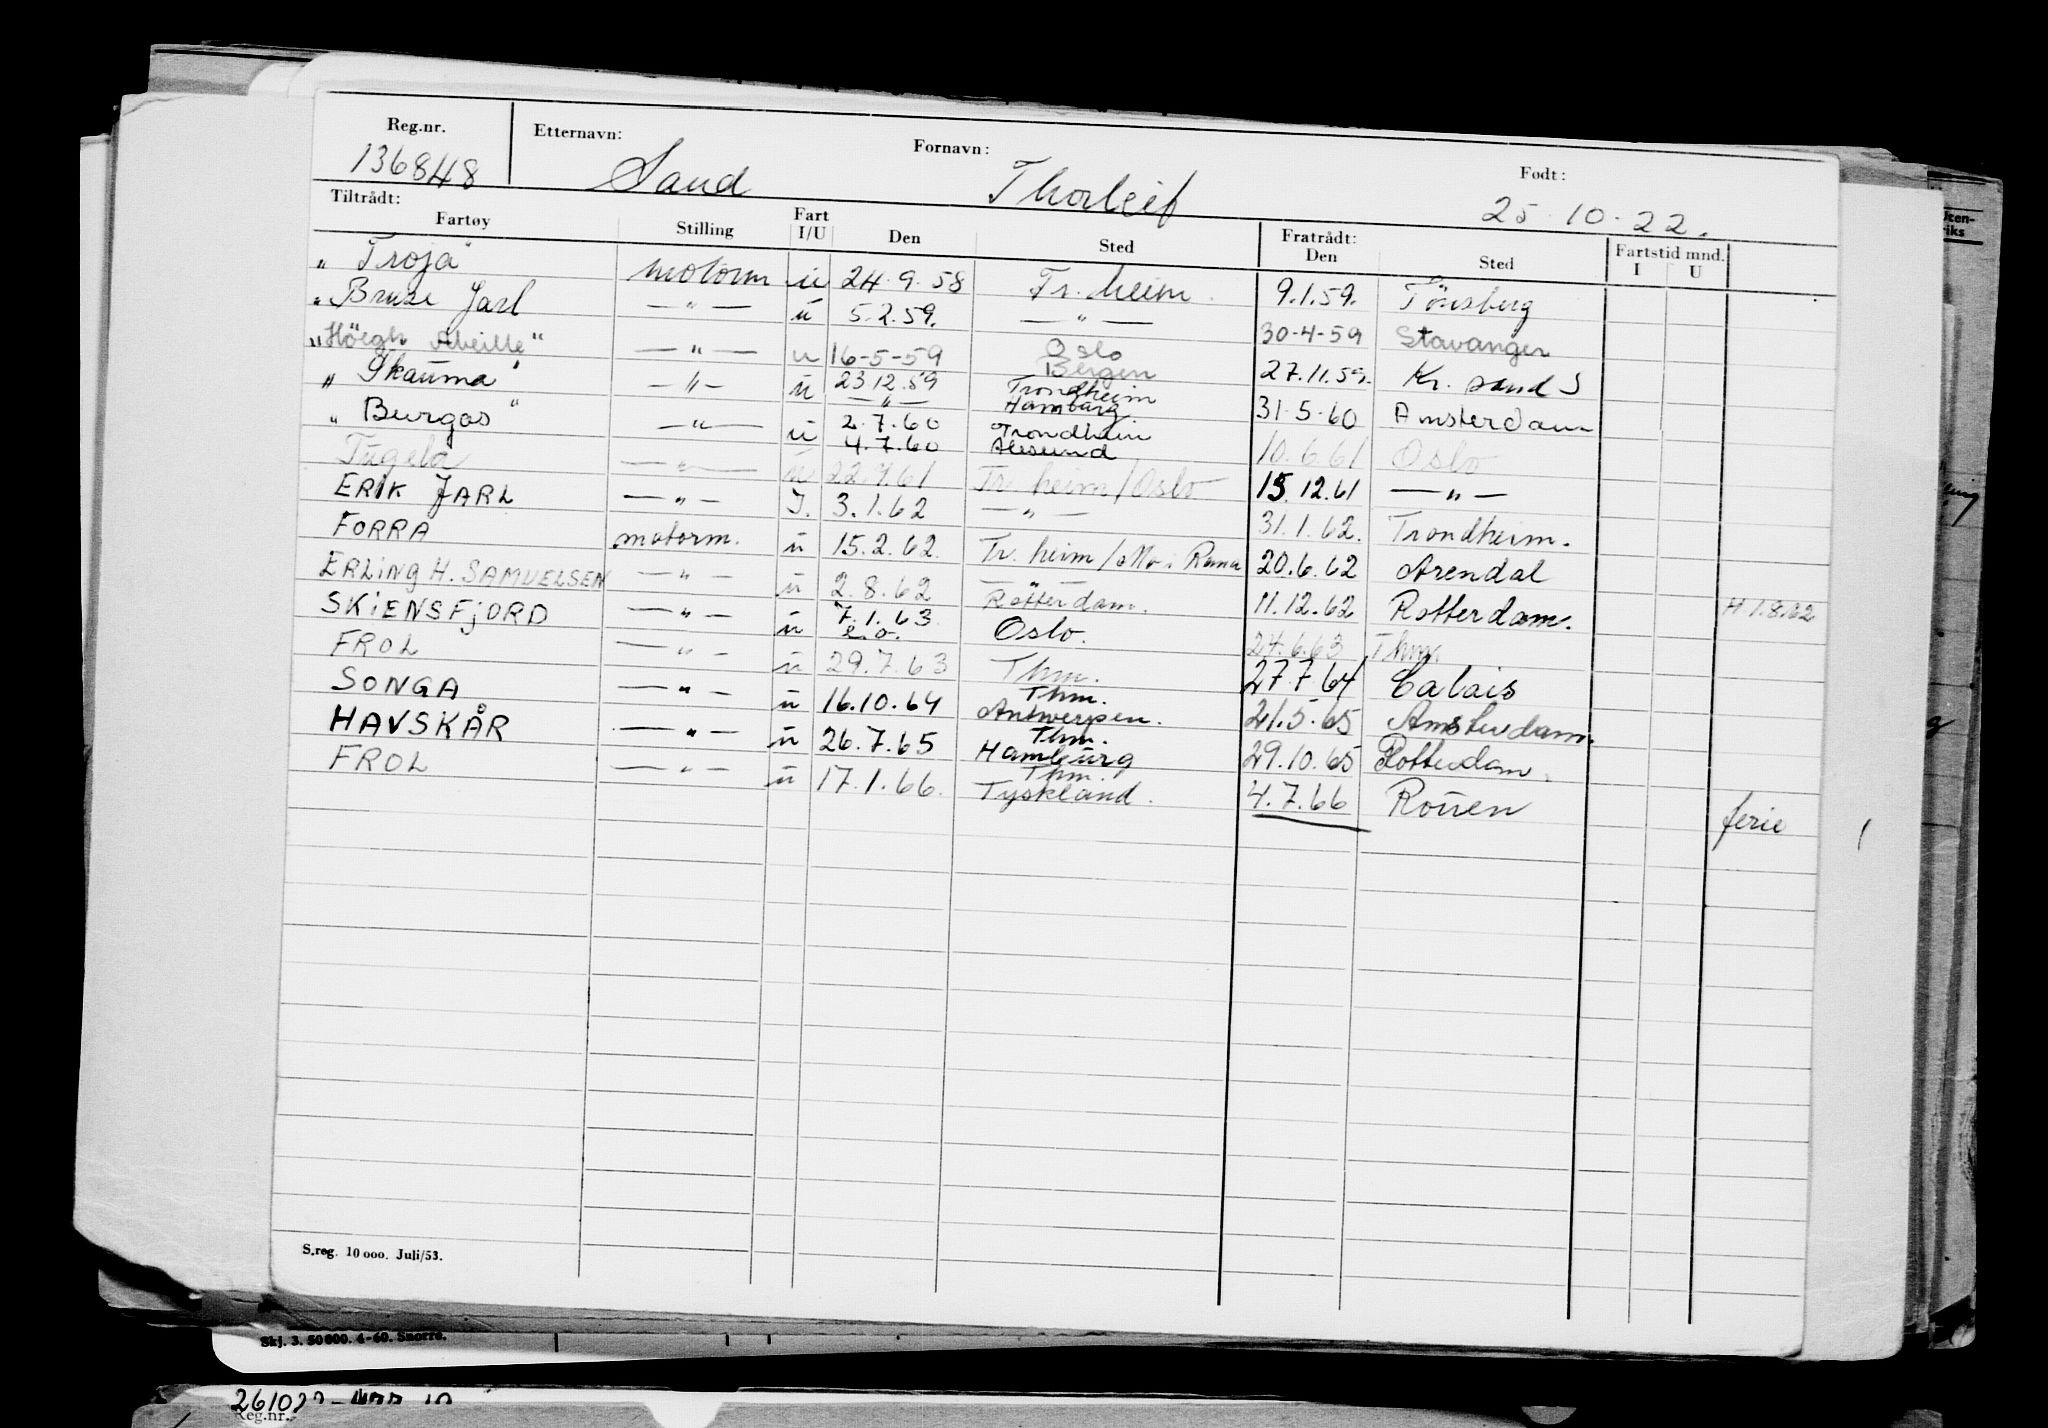 Reg.nr. Etternavn: Fornavn: Født:
136848 Sand Thorleif 25.10.22.
Tiltrådt: Fratrådt: Fartstid mnd.
Fartøy Stilling Fart I/U Den Sted Den Sted I U
„Troja" motorm u 24.9.58 Tr.heim. 9.1.59. Tönsberg
„Bruse Jarl — " — u 5.2.59. — " — 30-4-59 Stavanger
„Höegh Abeille" — " — u 16-5-59 Oslo Bergen 27.11.59. Kr. sand S
„Skauma" — " — u 23.12.59 — " — Trondheim Hamburg 31.5.60 Amsterdam
„Burgos" — " — u 2.7.60 4.7.60 Trondheim Ålesund 10.6.61 Oslo
Tugela — " — u 22.7.61 Tr.heim/Oslo 15.12.61 — " —
ERIK JARL — " — I. 3.1.62 — " — 31.1.62. Trondheim.
FORRA motorm. u 15.2.62. Tr.heim/Mo i Rana 20.6.62 Arendal
ERLING H. SAMUELSEN — " — u 2.8.62 — " — Rotterdam. 11.12.62 Rotterdam. H 1.8.62
SKIENSFJORD — " — u 7.1.63 e.o. Oslo. 24.6.63 Thm.
FROL — " — u 29.7.63 Thm. 27.7.64 Calais
SONGA — " — u 16.10.64 Thm. Antwerpen. 21.5.65 Amsterdam.
HAVSKÅR — " — u 26.7.65 Thm. Hamburg 29.10.65 Rotterdam.
FROL — " — u 17.1.66. Thm. Tyskland. 4.7.66 Rouen ferie
S.reg. 10 000. Juli/53.
Skj. 3. 50 000. 4-60. Snorre.
Reg.nr.